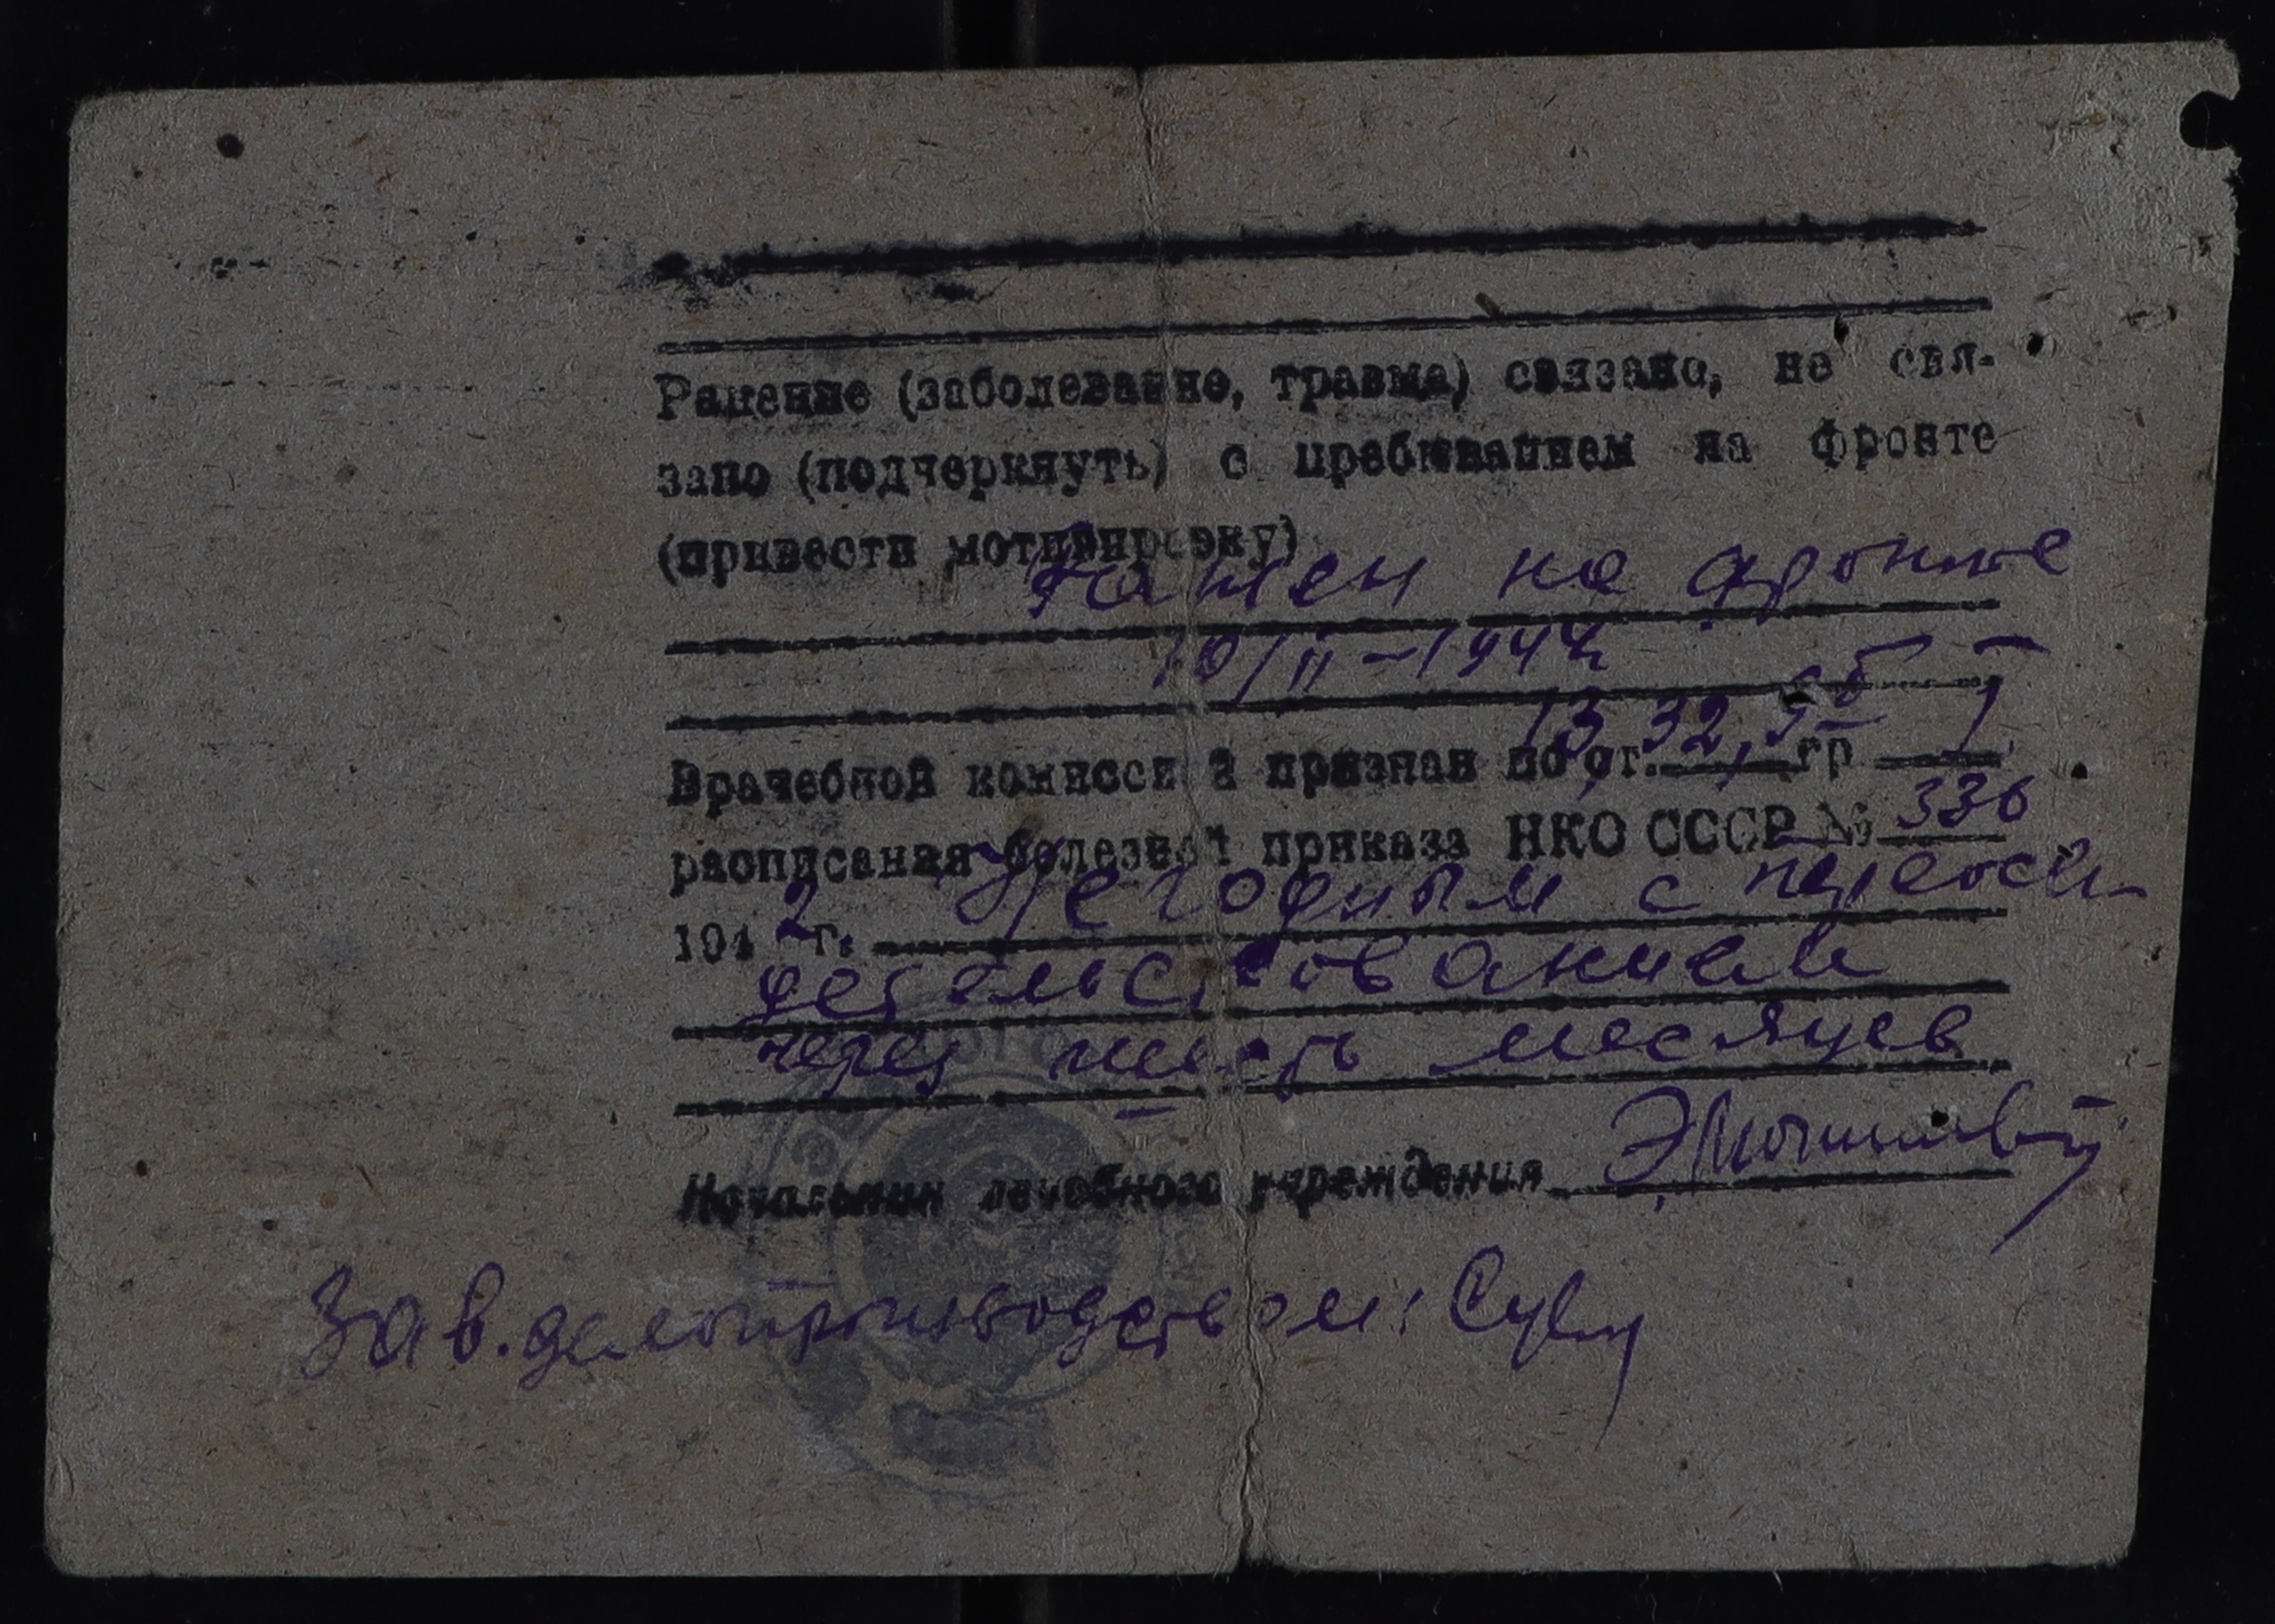 Ранение (заболевание, травма) связано, не свя-
зано (подчеркнуть) с пребыванием на фронте
(привести мотивировку)
Ранен на фронте
10/II-1944
13, 32,
Врачебной комиссией признан по ст. гр I
расписания болезней приказа НКО СССР № 336
194 2 г. негодным с переосви-
детельствованием
через шесть месяцев
Начальник лечебного учреждения
Зав. делопроизводством: